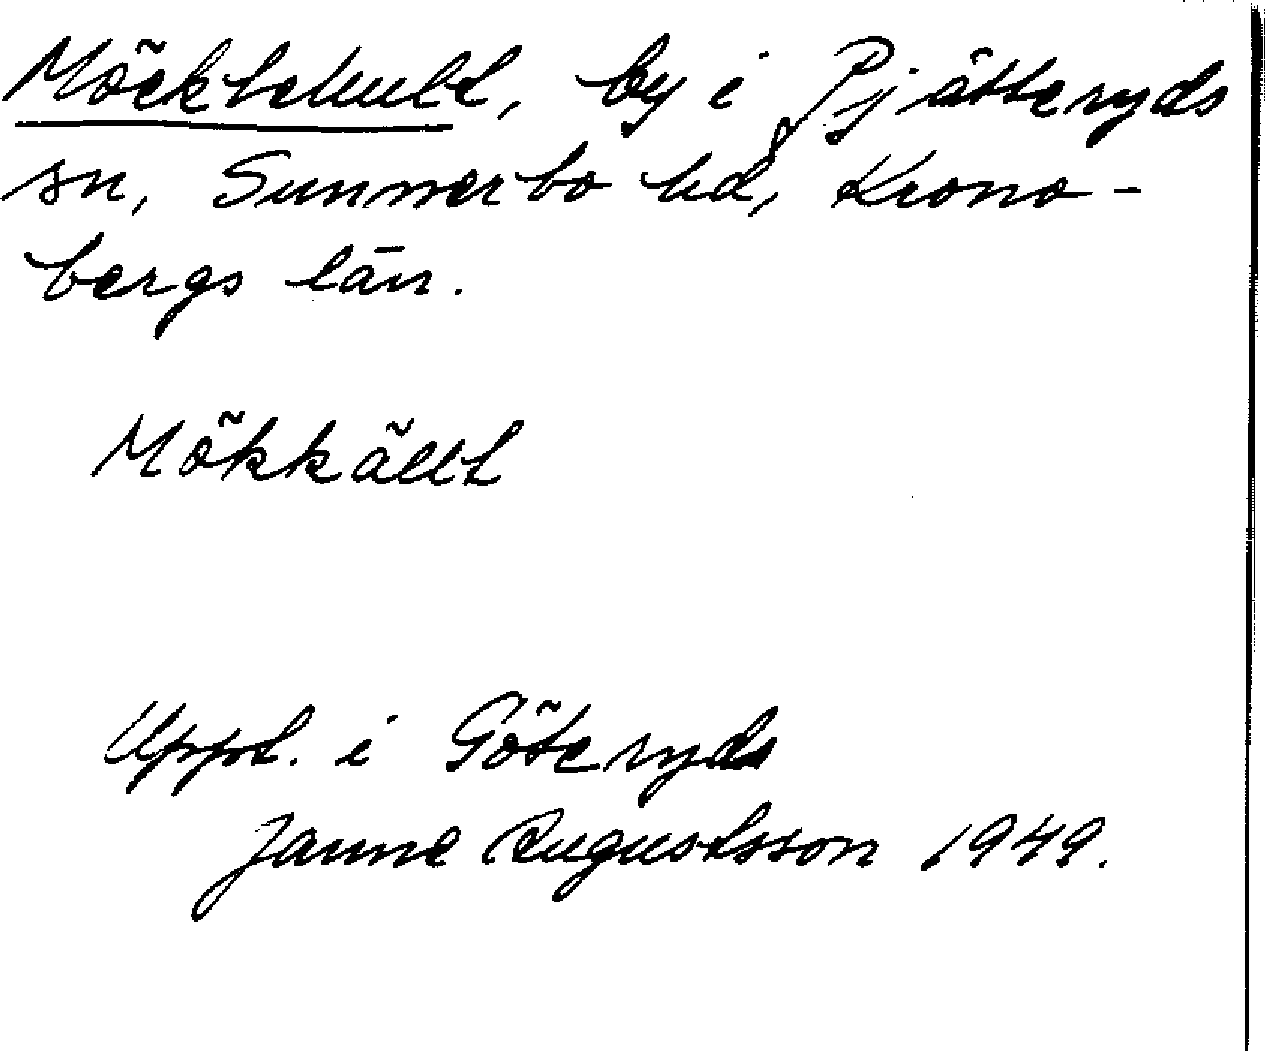 Möcklehult, by i Pjätteryds
sn, Sunnerbo hd, Krono-
bergs län.
Mökkällt
Uppt. i Göteryds
Janne Augustsson 1949.